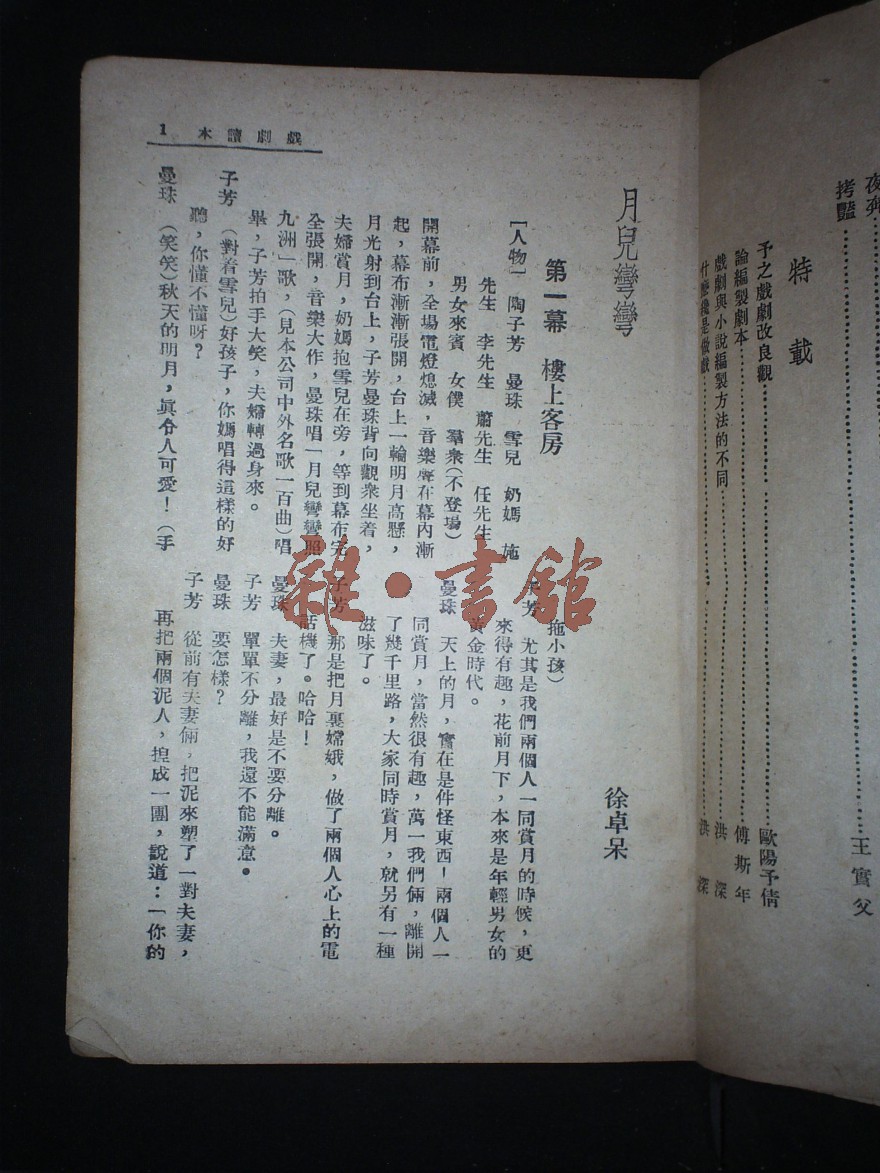 夜奔
拷豔……………………王實父
特載
予之戲劇改良觀……………………歐陽予倩
論編製劇本……………………傅斯年
戲劇與小說編製方法的不同……………………洪深
什麼纔是做戲……………………洪深
戲劇讀本 1
月兒彎彎
徐卓呆
第一幕 樓上客房
[人物] 陶子芳 曼珠 雪兒 奶媽 施
先生 李先生 蕭先生 任先生
男女來賓 女僕 羣衆(不登場)
開幕前,全場電燈熄滅,音樂聲在幕內漸
起,幕布漸漸張開,台上一輪明月高懸,
月光射到台上,子芳曼珠背向觀衆坐着,
夫婦賞月,奶媽抱雪兒在旁,等到幕布完
全張開,音樂大作,曼珠唱「月兒彎彎照
九洲」歌,(見本公司中外名歌一百曲)唱
畢,子芳拍手大笑,夫婦轉過身來。
子芳 (對着雪兒)好孩子,你媽唱得這樣的好
聽,你懂不懂呀?
曼珠 (笑笑)秋天的明月,眞令人可愛!(手
拖小孩)
子芳 尤其是我們兩個人一同賞月的時候,更
來得有趣,花前月下,本來是年輕男女的
黃金時代。
曼珠 天上的月,實在是件怪東西!兩個人一
同賞月,當然很有趣,萬一我們倆,離開
了幾千里路,大家同時賞月,就另有一種
滋味了。
子芳 那是把月裏嫦娥,做了兩個人心上的電
話機了。哈哈!
曼珠 夫妻,最好是不要分離。
子芳 單單不分離,我還不能滿意。
曼珠 要怎樣?
子芳 從前有夫妻倆,把泥來塑了一對夫妻,
再把兩個泥人,揑成一團,說道:「你的
雜·書館